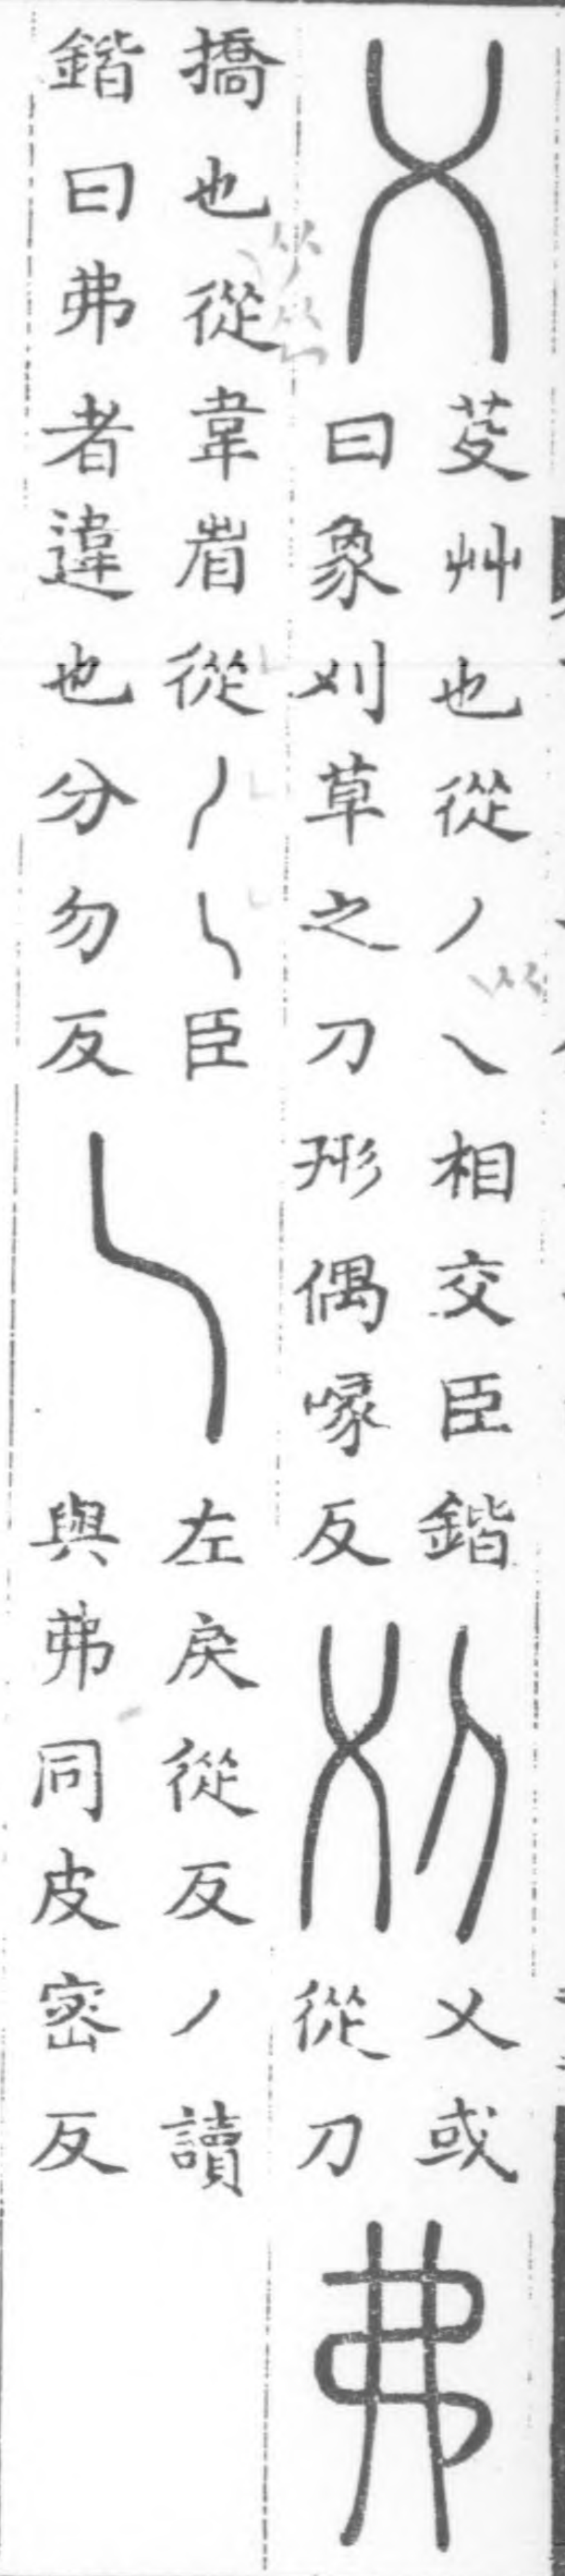 乂
芟艸也從丿乀相交臣鍇
曰象刈草之刀形偶喙反
刈
乂或
從刀
弗
撟也從韋省從丿乀臣
鍇曰弗者違也分勿反
乀
左戾從反丿讀
與弗同皮密反